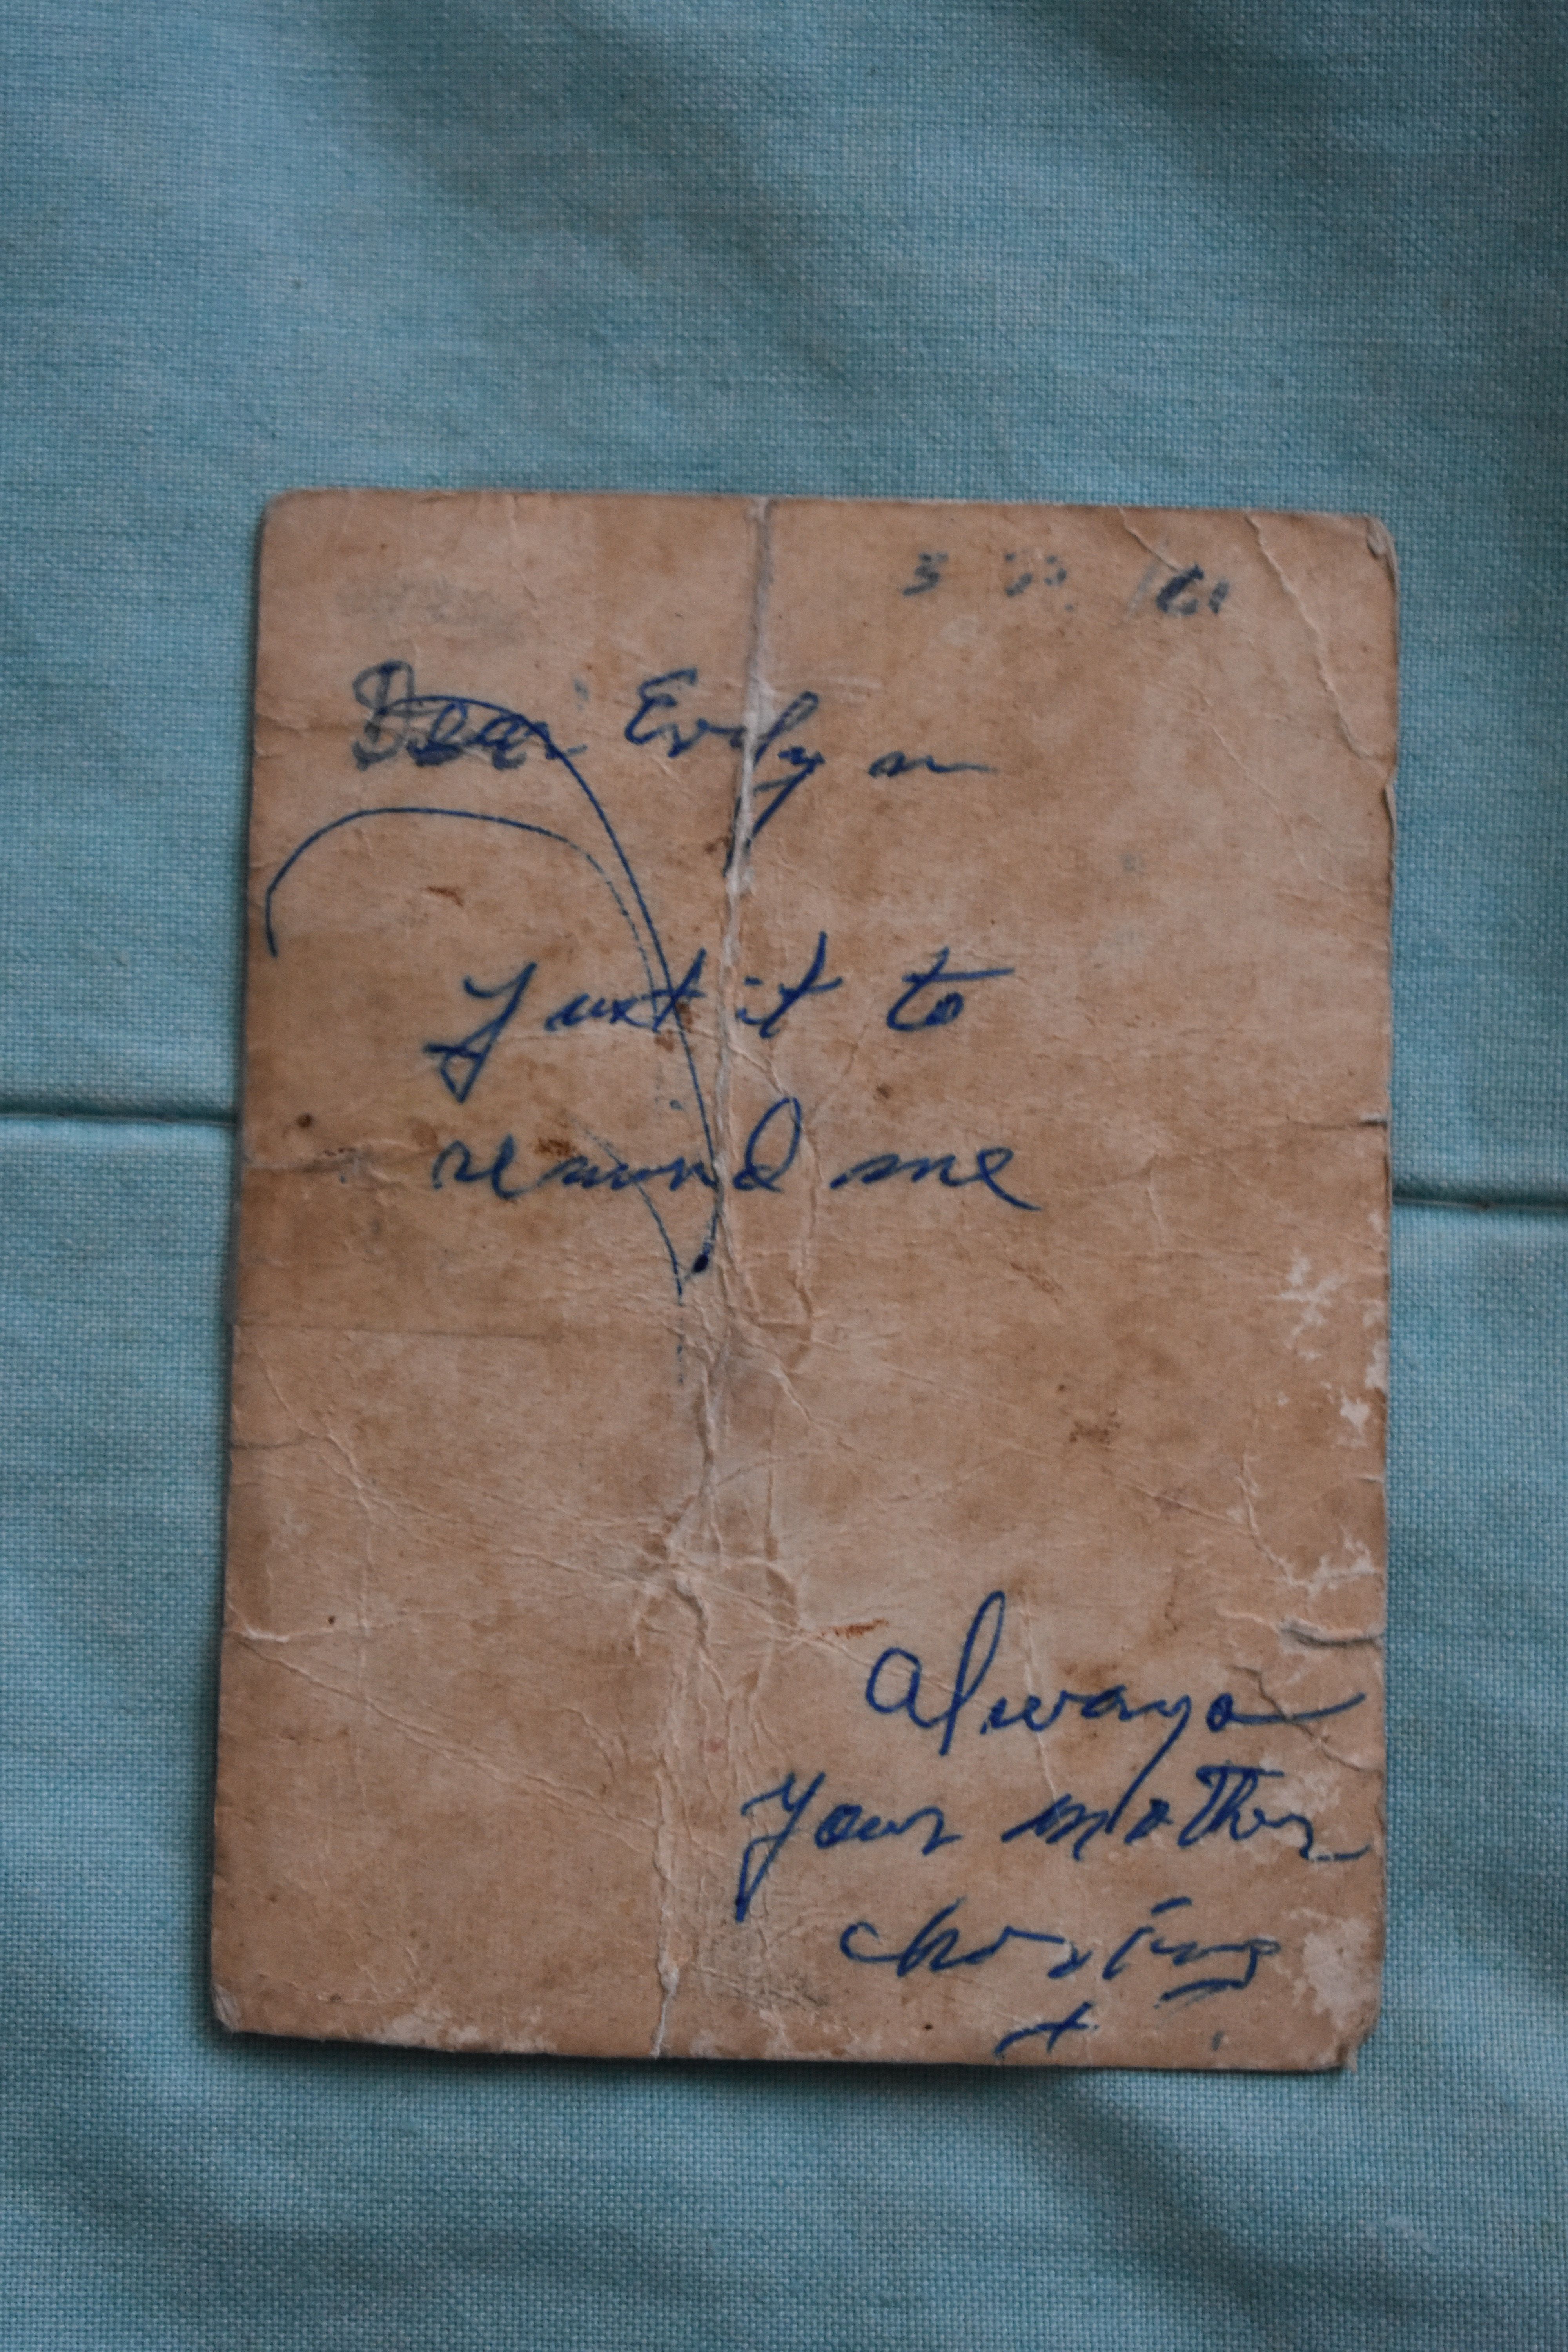 Dear Evelyn
Just it to
remind me
always
your mother